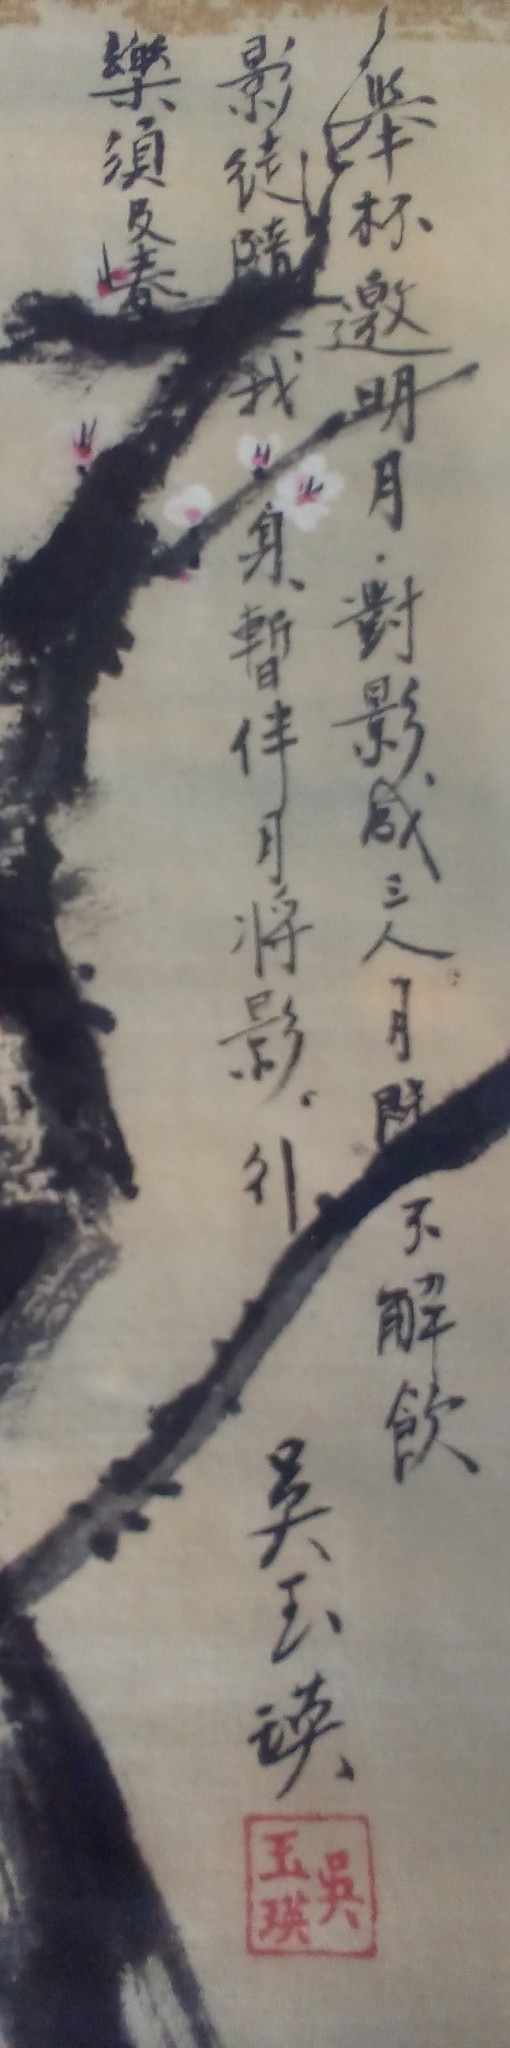 舉杯邀明月對影成三人月既不解飲
影徒隨我身暫伴月將影行
樂須及春
吳玉瑛
吳玉瑛